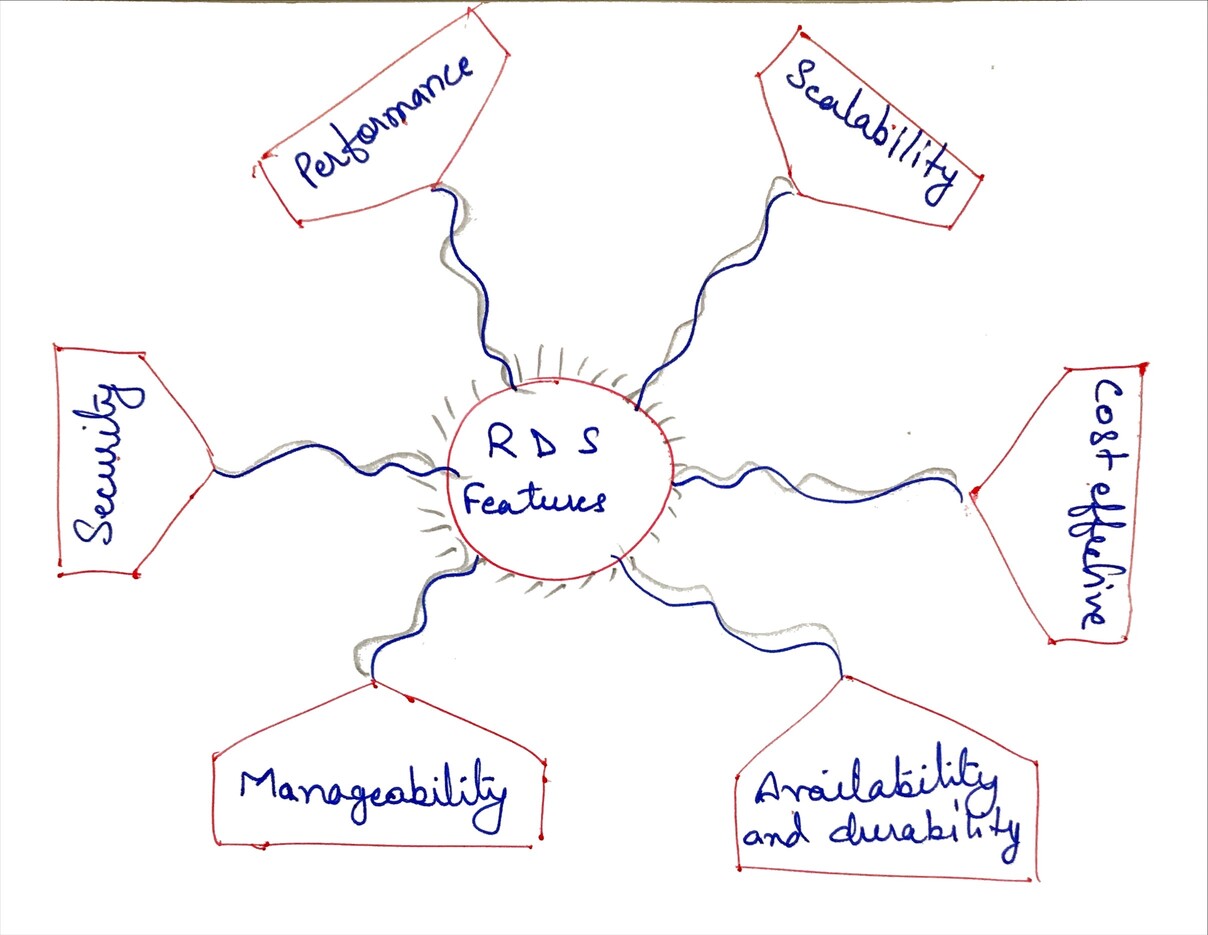 Performance
Scalability
Security
RDS
Features
Cost effective
Manageability
Availability
and durability